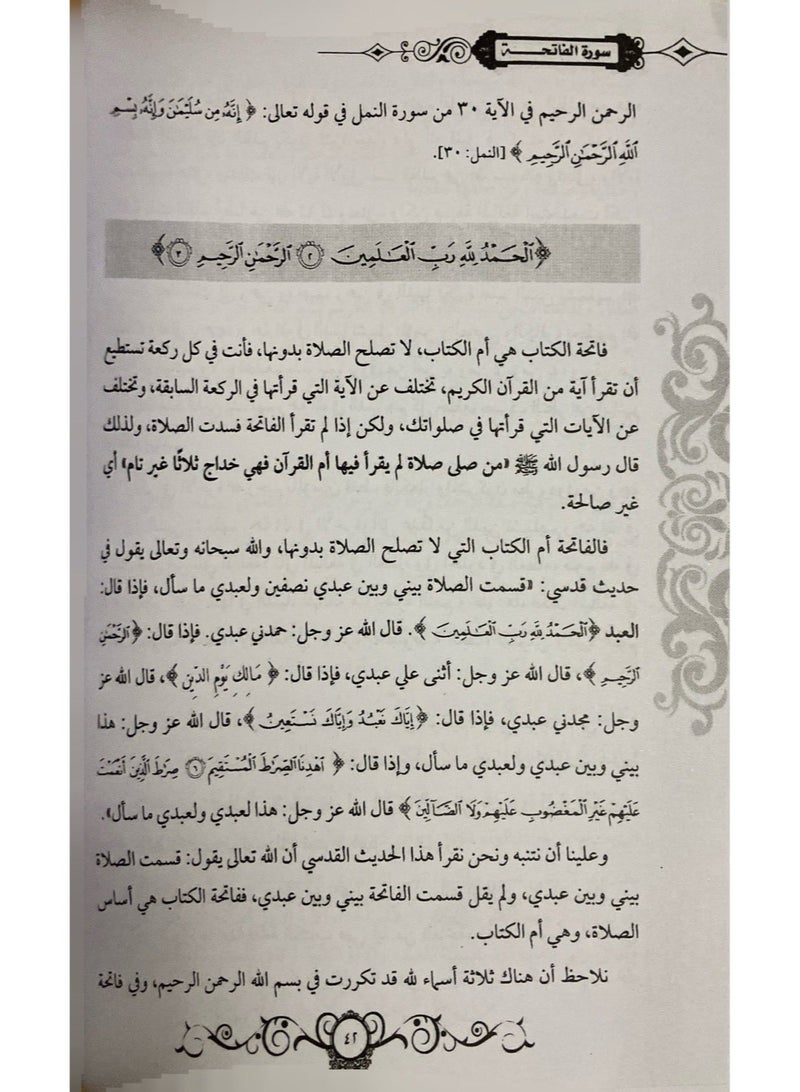 سورة الفاتحـــة
الرحمن الرحيم في الآية ٣٠ من سورة النمل في قوله تعالى: ﴿ إِنَّهُۥ مِن سُلَيْمَٰنَ وَإِنَّهُۥ بِسْمِ
ٱللَّهِ ٱلرَّحْمَٰنِ ٱلرَّحِيمِ ﴾ [النمل: ٣٠].
﴿ٱلْحَمْدُ لِلَّهِ رَبِّ ٱلْعَٰلَمِينَ ٢ ٱلرَّحْمَٰنِ ٱلرَّحِيمِ ٣﴾
فاتحة الكتاب هي أم الكتاب، لا تصلح الصلاة بدونها، فأنت في كل ركعة تستطيع
أن تقرأ آية من القرآن الكريم، تختلف عن الآية التي قرأتها في الركعة السابقة، وتختلف
عن الآيات التي قرأتها في صلواتك، ولكن إذا لم تقرأ الفاتحة فسدت الصلاة، ولذلك
قال رسول الله ﷺ «من صلى صلاة لم يقرأ فيها أم القرآن فهي خداج ثلاثًا غير تام» أي
غير صالحة.
فالفاتحة أم الكتاب التي لا تصلح الصلاة بدونها، والله سبحانه وتعالى يقول في
حديث قدسي: «قسمت الصلاة بيني وبين عبدي نصفين ولعبدي ما سأل، فإذا قال:
العبد ﴿ٱلْحَمْدُ لِلَّهِ رَبِّ ٱلْعَٰلَمِينَ ﴾. قال الله عز وجل: حمدني عبدي. فإذا قال: ﴿ٱلرَّحْمَٰنِ
ٱلرَّحِيمِ ﴾، قال الله عز وجل: أثنى علي عبدي، فإذا قال: ﴿ مَٰلِكِ يَوْمِ ٱلدِّينِ ﴾، قال الله عز
وجل: مجدني عبدي، فإذا قال: ﴿إِيَّاكَ نَعْبُدُ وَإِيَّاكَ نَسْتَعِينُ ﴾، قال الله عز وجل: هذا
بيني وبين عبدي ولعبدي ما سأل، وإذا قال: ﴿ ٱهْدِنَا ٱلصِّرَٰطَ ٱلْمُسْتَقِيمَ ٦ صِرَٰطَ ٱلَّذِينَ أَنْعَمْتَ
عَلَيْهِمْ غَيْرِ ٱلْمَغْضُوبِ عَلَيْهِمْ وَلَا ٱلضَّآلِّينَ ﴾ قال الله عز وجل: هذا لعبدي ولعبدي ما سأل».
وعلينا أن نتنبه ونحن نقرأ هذا الحديث القدسي أن الله تعالى يقول: قسمت الصلاة
بيني وبين عبدي، ولم يقل قسمت الفاتحة بيني وبين عبدي، ففاتحة الكتاب هي أساس
الصلاة، وهي أم الكتاب.
نلاحظ أن هناك ثلاثة أسماء لله قد تكررت في بسم الله الرحمن الرحيم، وفي فاتحة
٤٢